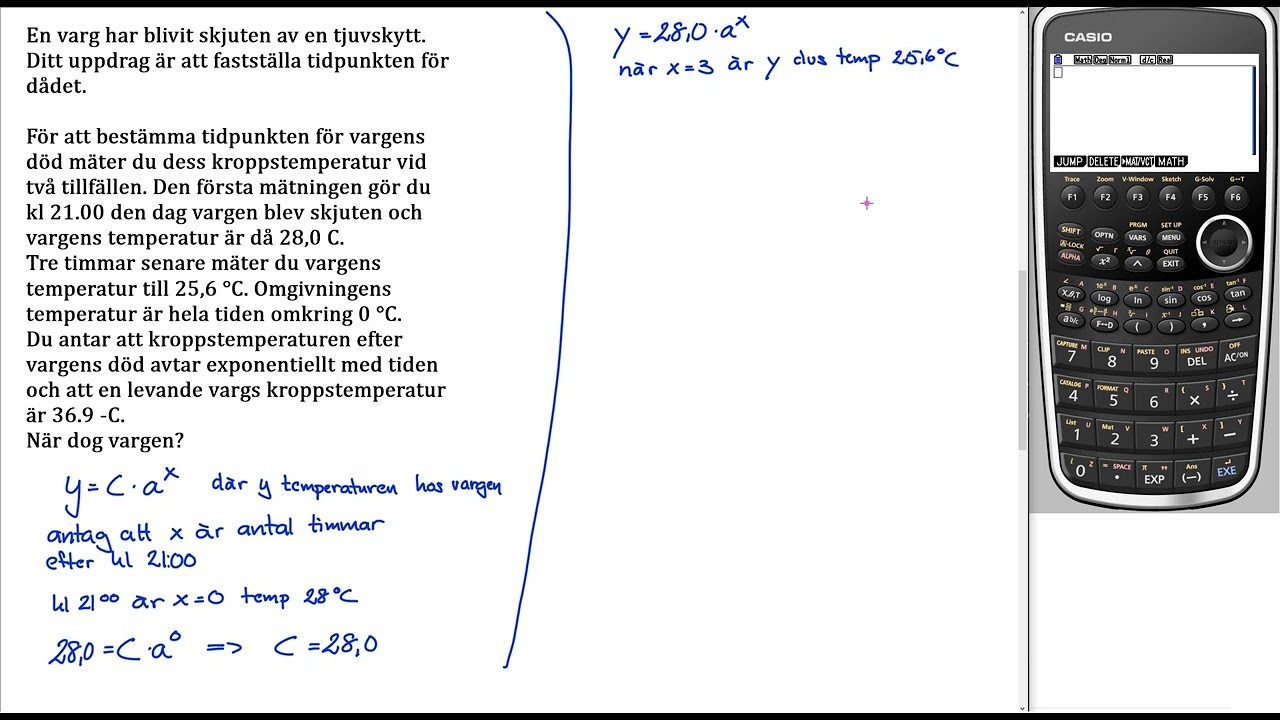 En varg har blivit skjuten av en tjuvskytt.
Ditt uppdrag är att fastställa tidpunkten för
dådet.
För att bestämma tidpunkten för vargens
död mäter du dess kroppstemperatur vid
två tillfällen. Den första mätningen gör du
kl 21.00 den dag vargen blev skjuten och
vargens temperatur är då 28,0 C.
Tre timmar senare mäter du vargens
temperatur till 25,6 °C. Omgivningens
temperatur är hela tiden omkring 0 °C.
Du antar att kroppstemperaturen efter
vargens död avtar exponentiellt med tiden
och att en levande vargs kroppstemperatur
är 36.9 -C.
När dog vargen?
y = C · a^x där y temperaturen hos vargen
antag att x är antal timmar
efter kl 21:00
kl 21⁰⁰ är x=0 temp 28°C
28,0 = C · a⁰ => C = 28,0
y = 28,0 · a^x
när x=3 är y dvs temp 25,6°C
CASIO
Math Deg Norm1 d/c Real
JUMP DELETE ▶MAT/VCT MATH
Trace Zoom V-Window Sketch G-Solv G↔T
F1 F2 F3 F4 F5 F6
PRGM SET UP
SHIFT OPTN VARS MENU
A-LOCK √ r ˣ√ θ QUIT
ALPHA x² ^ EXIT
∠ A 10ˣ B eˣ C sin⁻¹ D cos⁻¹ E tan⁻¹ F
X,θ,T log ln sin cos tan
a b/c F↔D ( ) , →
CAPTURE M CLIP N PASTE O INS UNDO OFF
7 8 9 DEL AC/ON
CATALOG P FORMAT Q R { S } T
4 5 6 × ÷
List U Mat V W [ X ] Y
1 2 3 + −
i Z = SPACE π " Ans
0 . EXP (−) EXE